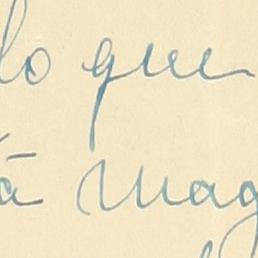 lo que
a mag